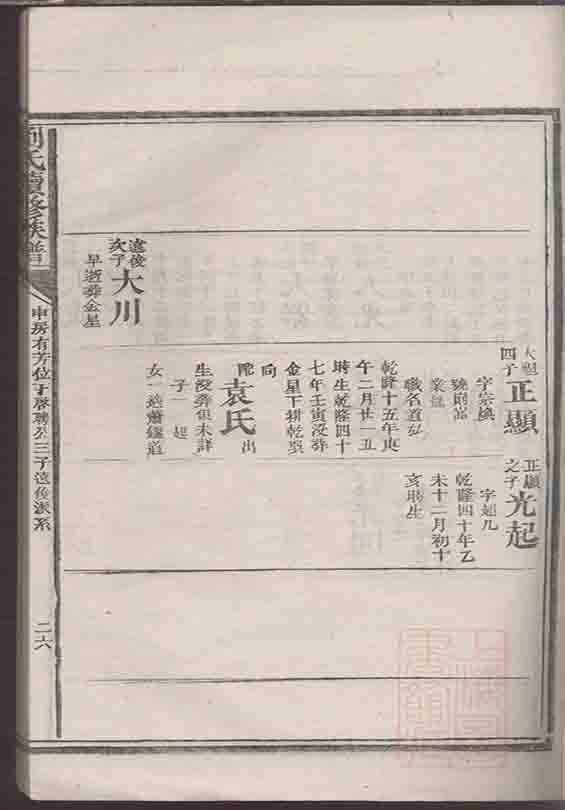 大魁
四子
正顯
字宗煥
號則嵩
業儒
職名道弘
乾隆十五年庚
午二月廿一丑
時生乾隆四十
七年壬寅没葬
金星下排乾㢲
向
配袁氏出
生没葬俱未詳
子一超
女一適蕭鍾道
正顯
之子
光起
字超凡
乾隆四十年乙
未十二月初十
亥時生
遠俊
次子
大川
早逝葬金星
劉氏續修族譜
申房有芳位下啓聘公三子遠俊派系
二六
上海圖
書館藏